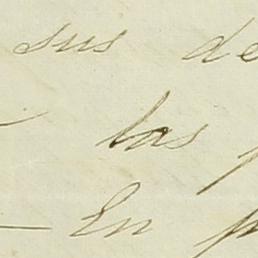 sus de
las p
— En p